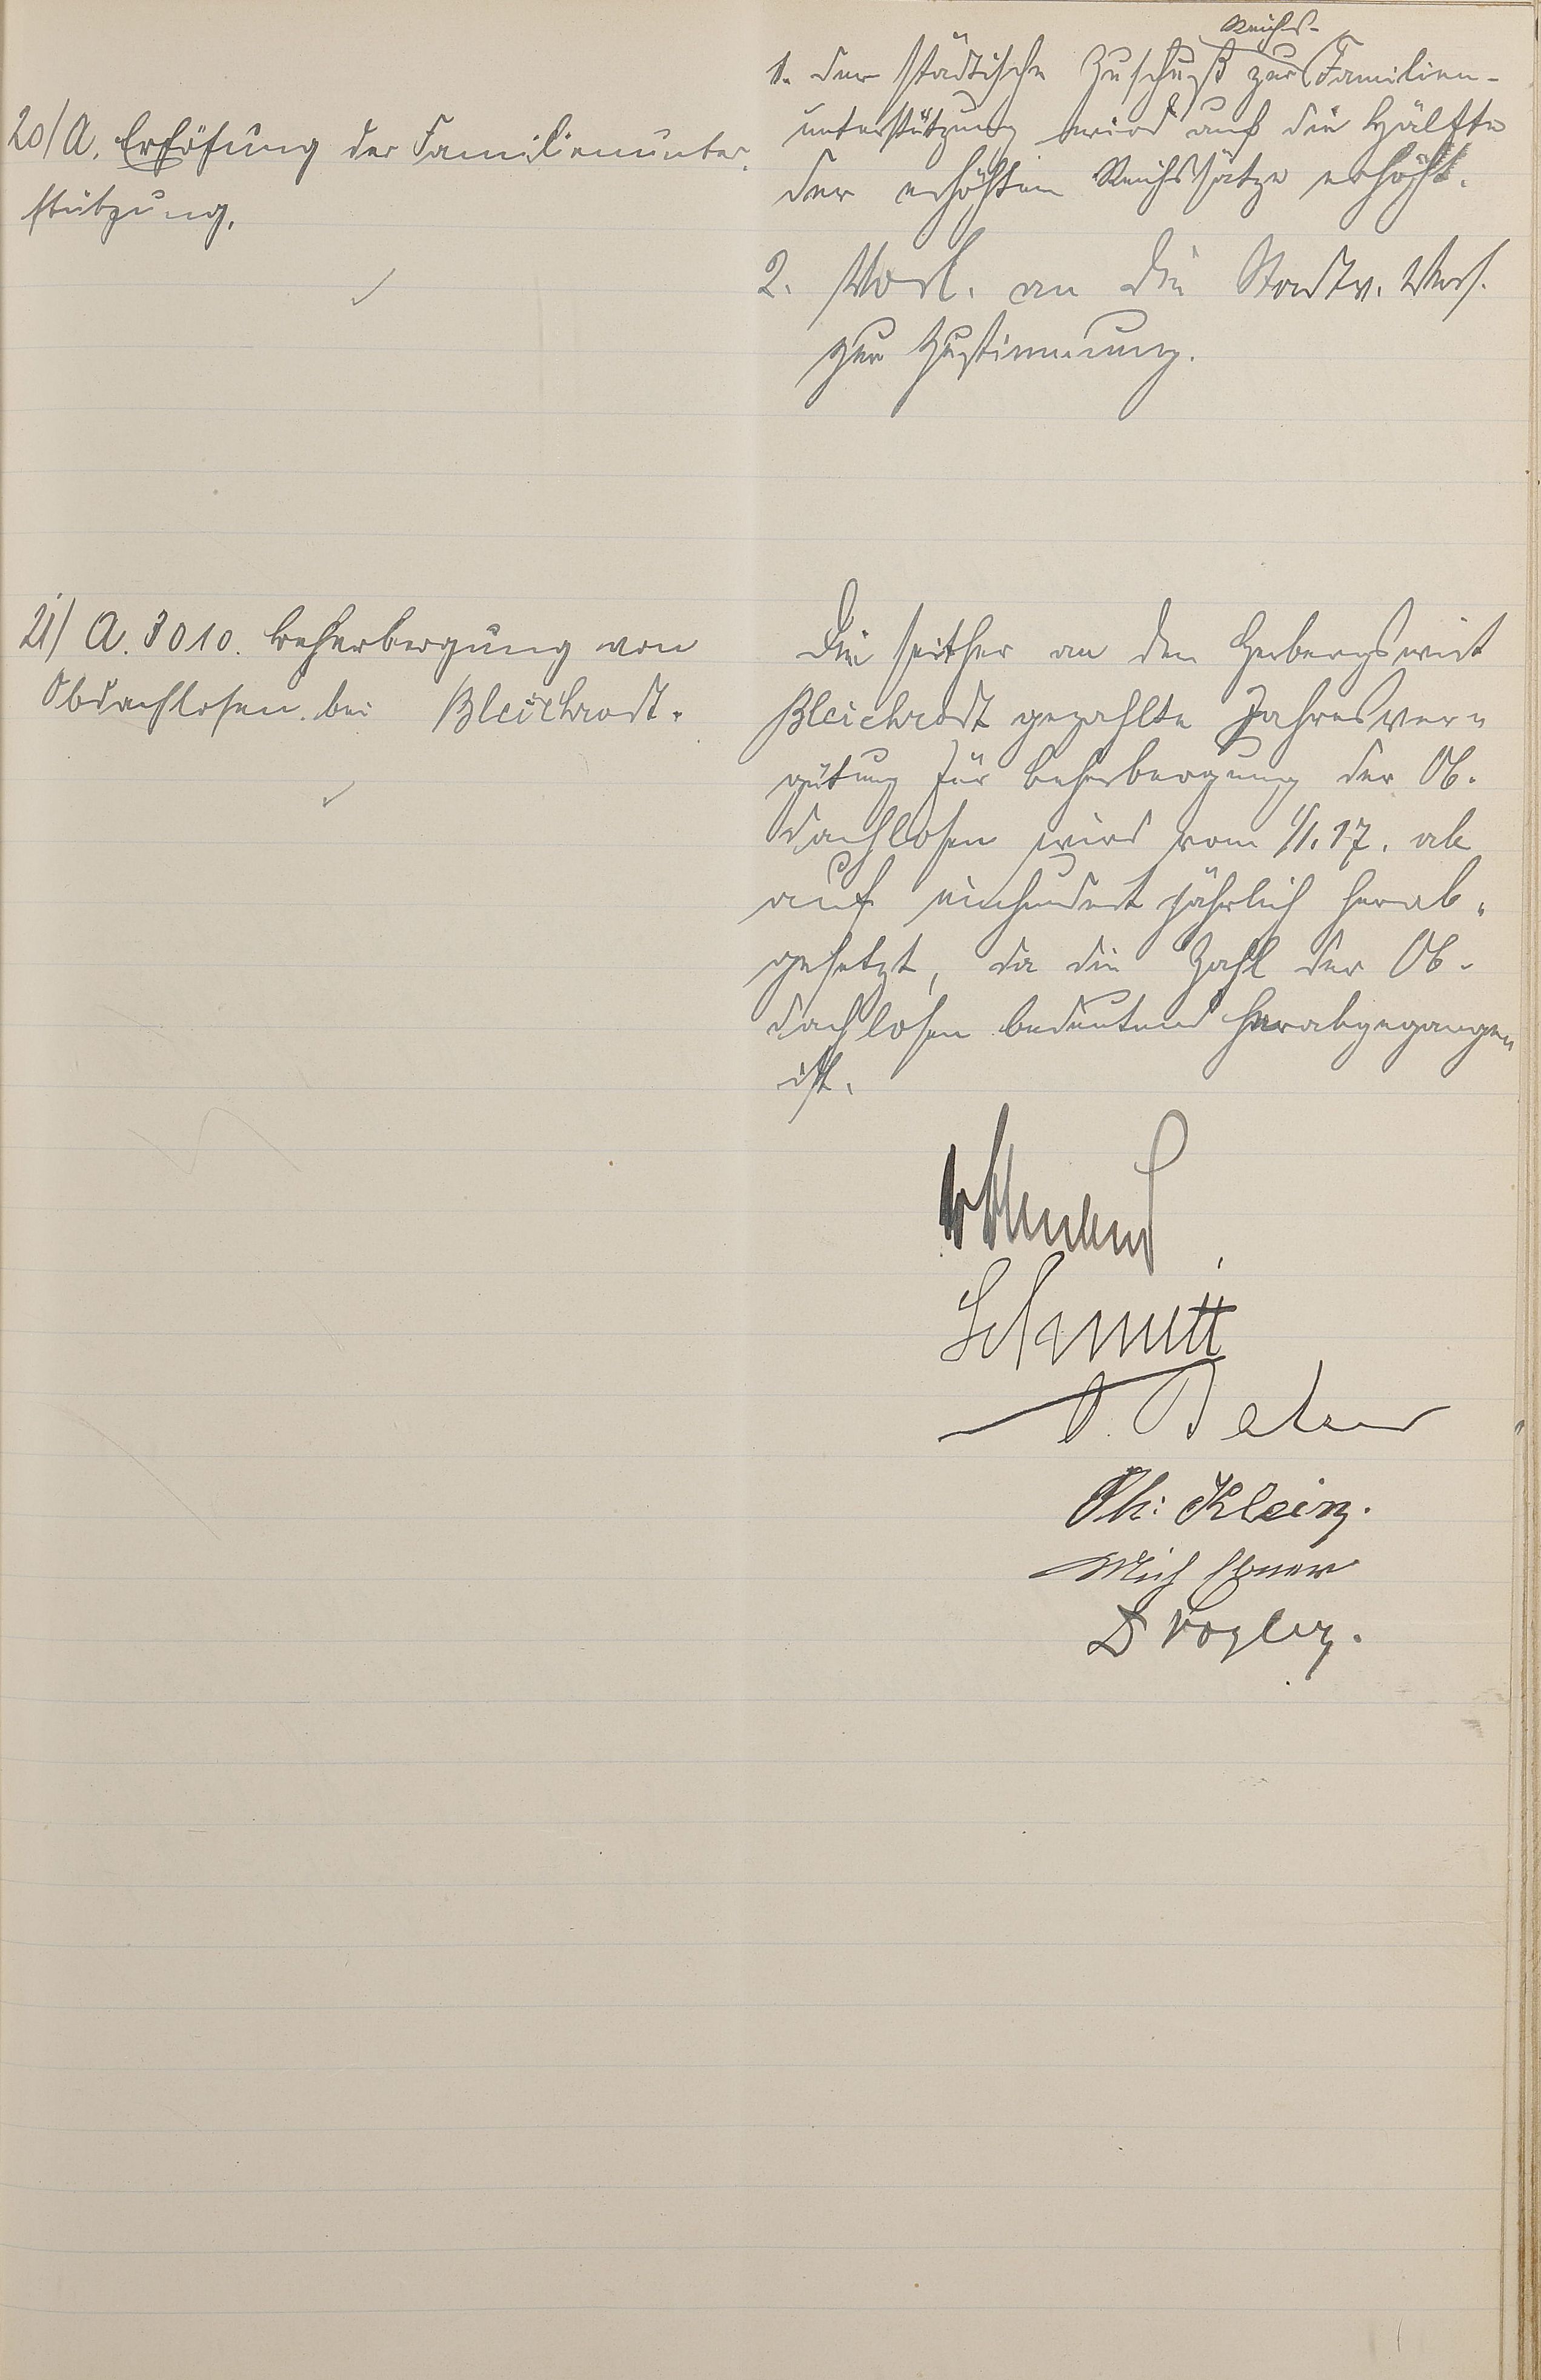 20/ A. Erhöhung der Familienunter-
stützung.
1. der städtische Zuschuß zur Reichs-Familien-
unterstützung wird auf die Hälfte
der erhöhten Reichssätze erhöht.
2. Vorl. an die Stadtv. Vers.
zur Zustimmung.
21/ A. 3010. Beherbergung von
Obdachlosen bei Bleichrodt.
Die seither an den Herbergswirt
Bleichrodt gezahlte Jahresver-
gütung für Beherbergung der Ob-
dachlosen wird vom 1/1.17. ab
auf einhundert jährlich herab-
gesetzt, da die Zahl der Ob-
dachlosen bedeutend herabgegangen
ist.
Schmitt
Ph: Klein.
Mich
D Vogler.